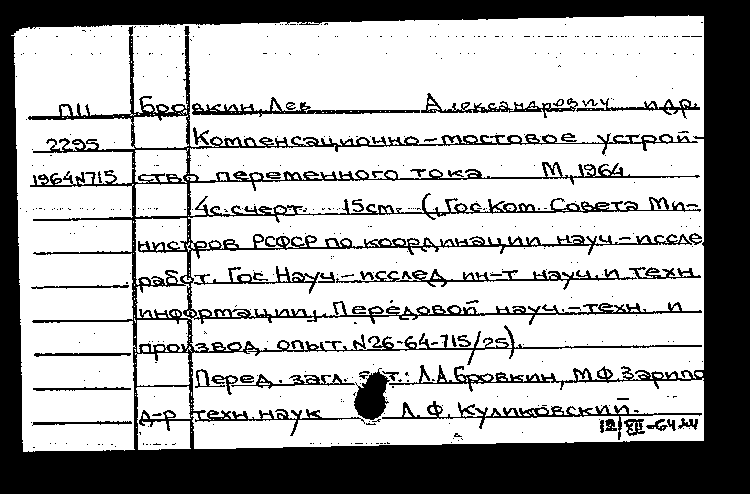 П11 Бровкин, Лев Александрович и др.
2295 Компенсационно-мостовое устрой-
1964N715 ство переменного тока. М., 1964
4с. с черт. 15см. (Гос. Ком. Совета Ми-
нистров РСФСР по координации науч.-иссле
работ. Гос. Науч.-исслед. ин-т науч. и техн.
информации. Передовой науч.-техн. и
производ. опыт. N26-64-715/25).
Перед загл. : Л.А. Бровкин, М.Ф. Зарипо
д-р техн. наук Л.Ф. Куликовский.
12/XII-64